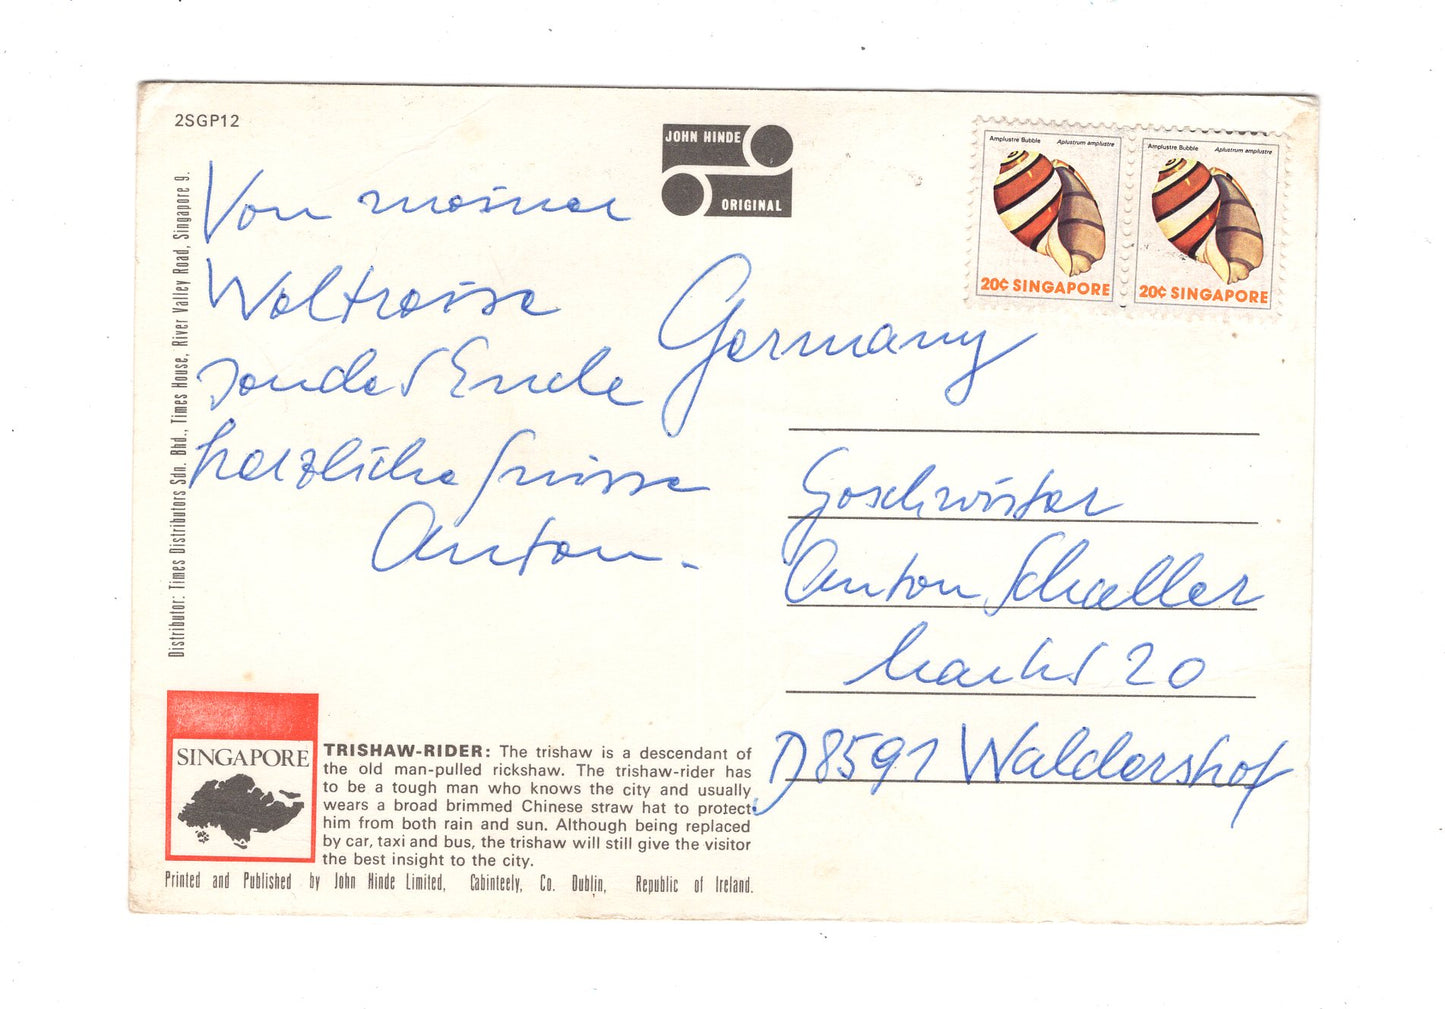 2SGP12
JOHN HINDE
ORIGINAL
Amplustre Bubble Aplustrum amplustre
20¢ SINGAPORE
Amplustre Bubble Aplustrum amplustre
20¢ SINGAPORE
Distributor: Times Distributors Sdn. Bhd., Times House, River Valley Road, Singapore 9.
Von meiner
Weltreise
sendet Euch
herzliche Grüsse
Anton.
Germany
Geschwister
Anton Schaller
Markt 20
D 8591 Waldershof
SINGAPORE
TRISHAW-RIDER: The trishaw is a descendant of
the old man-pulled rickshaw. The trishaw-rider has
to be a tough man who knows the city and usually
wears a broad brimmed Chinese straw hat to protect
him from both rain and sun. Although being replaced
by car, taxi and bus, the trishaw will still give the visitor
the best insight to the city.
Printed and Published by John Hinde Limited, Cabinteely, Co. Dublin, Republic of Ireland.